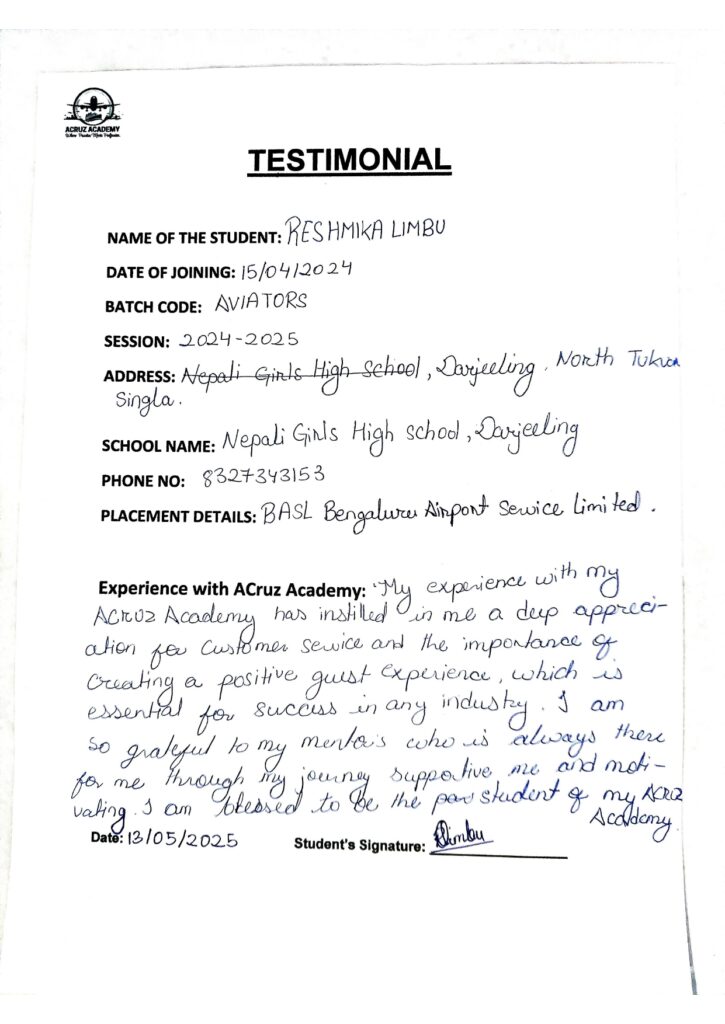 ACRUZ ACADEMY
TESTIMONIAL
NAME OF THE STUDENT: RESHMIKA LIMBU
DATE OF JOINING: 15/04/2024
BATCH CODE: AVIATORS
SESSION: 2024-2025
ADDRESS: Nepali Girls High School, Darjeeling. North Tukvar
Singla.
SCHOOL NAME: Nepali Girls High school, Darjeeling
PHONE NO: 8327343153
PLACEMENT DETAILS: BASL Bengaluru Airport Service Limited.
Experience with ACruz Academy: "My experience with my
ACRUZ Academy has instilled in me a deep appreci-
ation for customer service and the importance of
creating a positive guest experience, which is
essential for success in any industry. I am
so grateful to my mentors who is always there
for me through my journey supportive me and moti-
vating. I am blessed to be the student of my ACRUZ
Academy.
Date: 13/05/2025 Student's Signature: Limbu